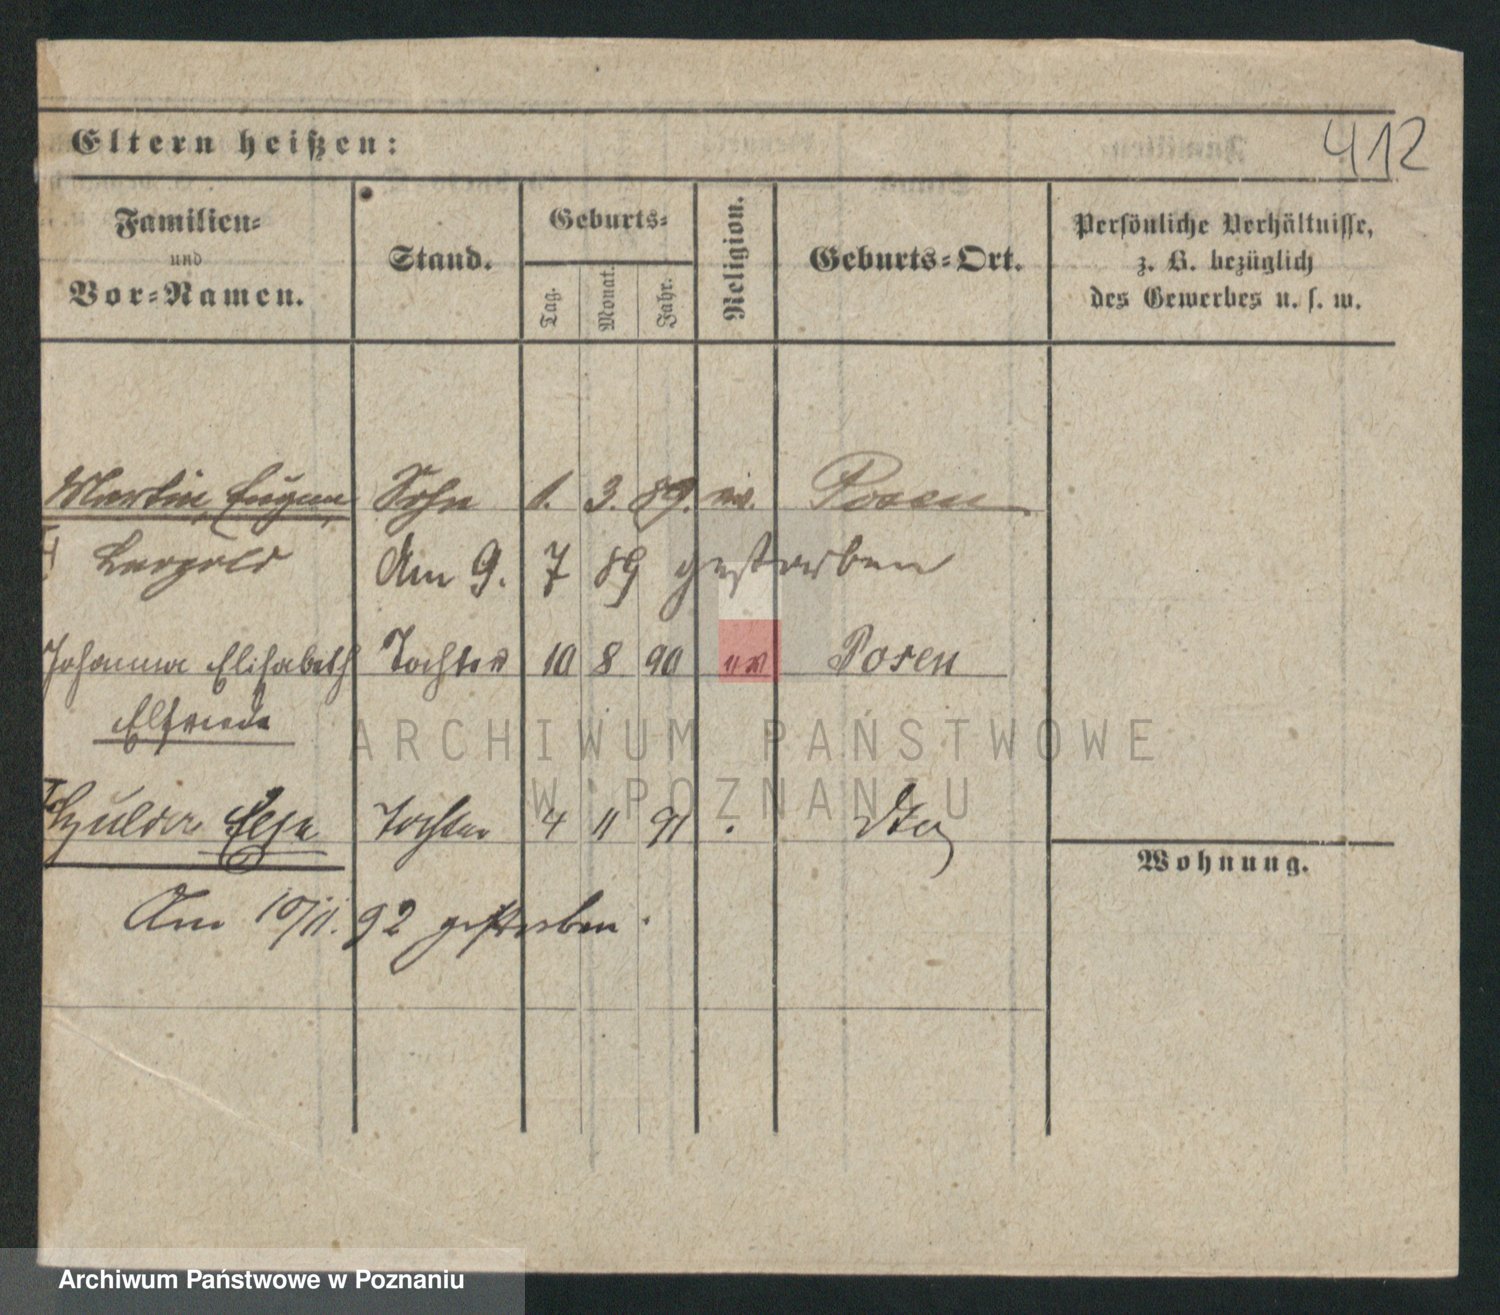 412
Eltern heißen:
Familien-
und
Vor-Namen.
Stand.
Geburts-
Tag.
Monat.
Jahr.
Religion.
Geburts-Ort.
Persönliche Verhältnisse,
z. B. bezüglich
des Gewerbes u. s. w.
Martin, Eugen, Sohn 1. 3. 89. ev. Posen
Leopold Am 9. 7 89 gestorben
Johanna Elisabeth Tochter 10 8 90 ev Posen
Elfriede
Else Tochter 4 11 91 . dto
Wohnung.
Am 10/11. 92 gestorben.
ARCHIWUM PAŃSTWOWE
W POZNANIU
Archiwum Państwowe w Poznaniu